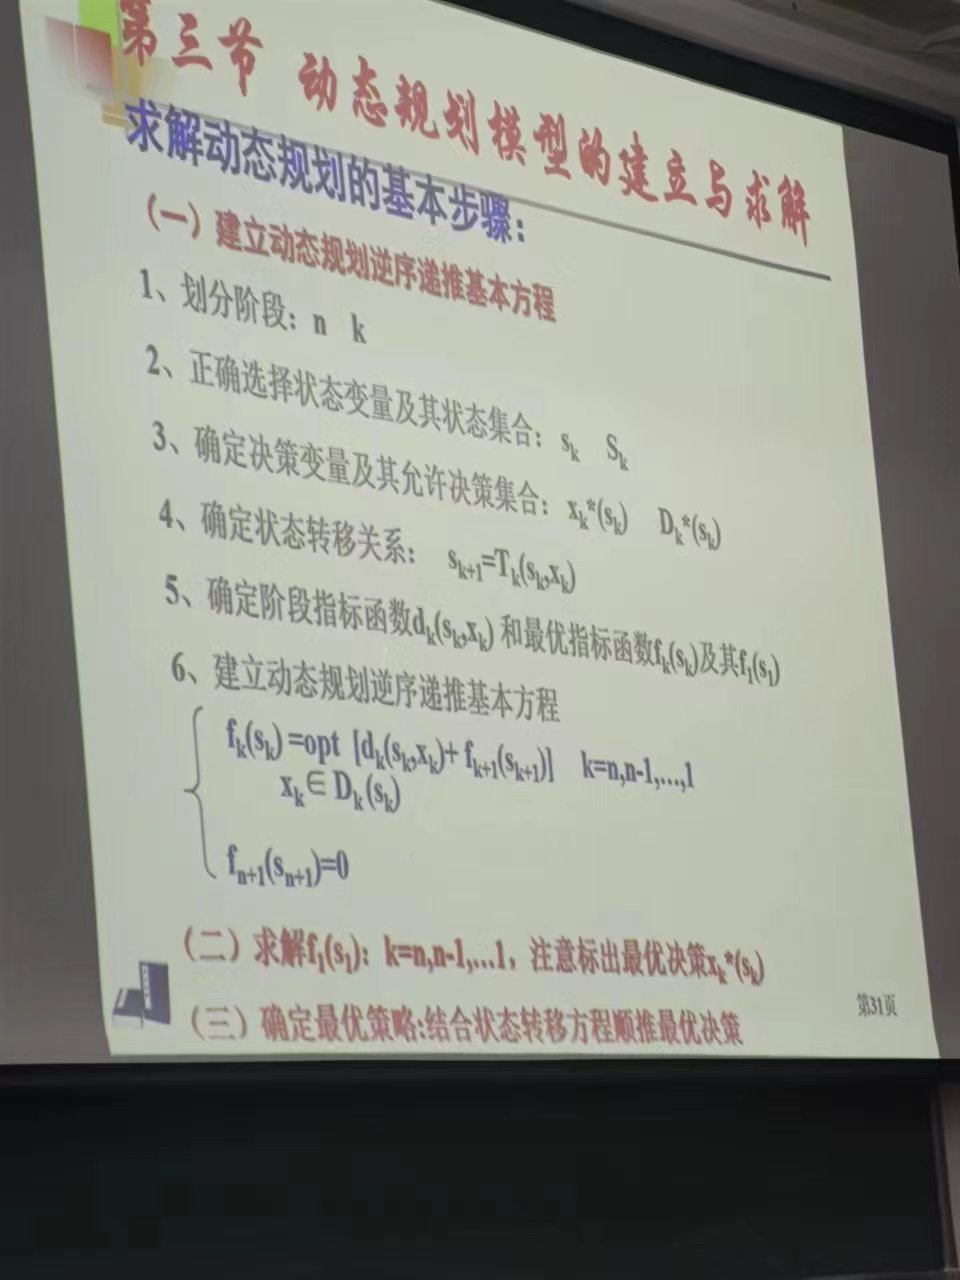 第三节 动态规划模型的建立与求解
求解动态规划的基本步骤：
（一）建立动态规划逆序递推基本方程
1、划分阶段：n k
2、正确选择状态变量及其状态集合：sₖ Sₖ
3、确定决策变量及其允许决策集合：xₖ*(sₖ) Dₖ*(sₖ)
4、确定状态转移关系： sₖ₊₁=Tₖ(sₖ,xₖ)
5、确定阶段指标函数dₖ(sₖ,xₖ) 和最优指标函数fₖ(sₖ)及其f₁(s₁)
6、建立动态规划逆序递推基本方程
fₖ(sₖ) =opt [dₖ(sₖ,xₖ)+ fₖ₊₁(sₖ₊₁)] k=n,n-1,…,1
xₖ∈ Dₖ(sₖ)
fₙ₊₁(sₙ₊₁)=0
（二）求解f₁(s₁)：k=n,n-1,…1，注意标出最优决策xₖ*(sₖ)
（三）确定最优策略:结合状态转移方程顺推最优决策
第31页